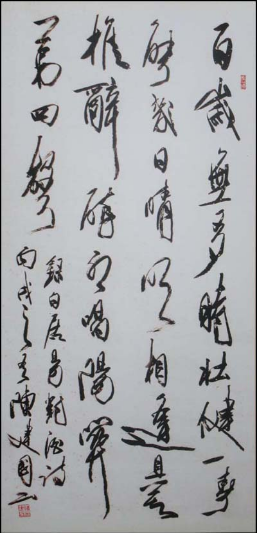 百歲無多時壯健一春
能幾日晴明相逢且莫
推辭醉聽唱陽關
第四聲
錄白居易對酒詩
丙戌之陳建國